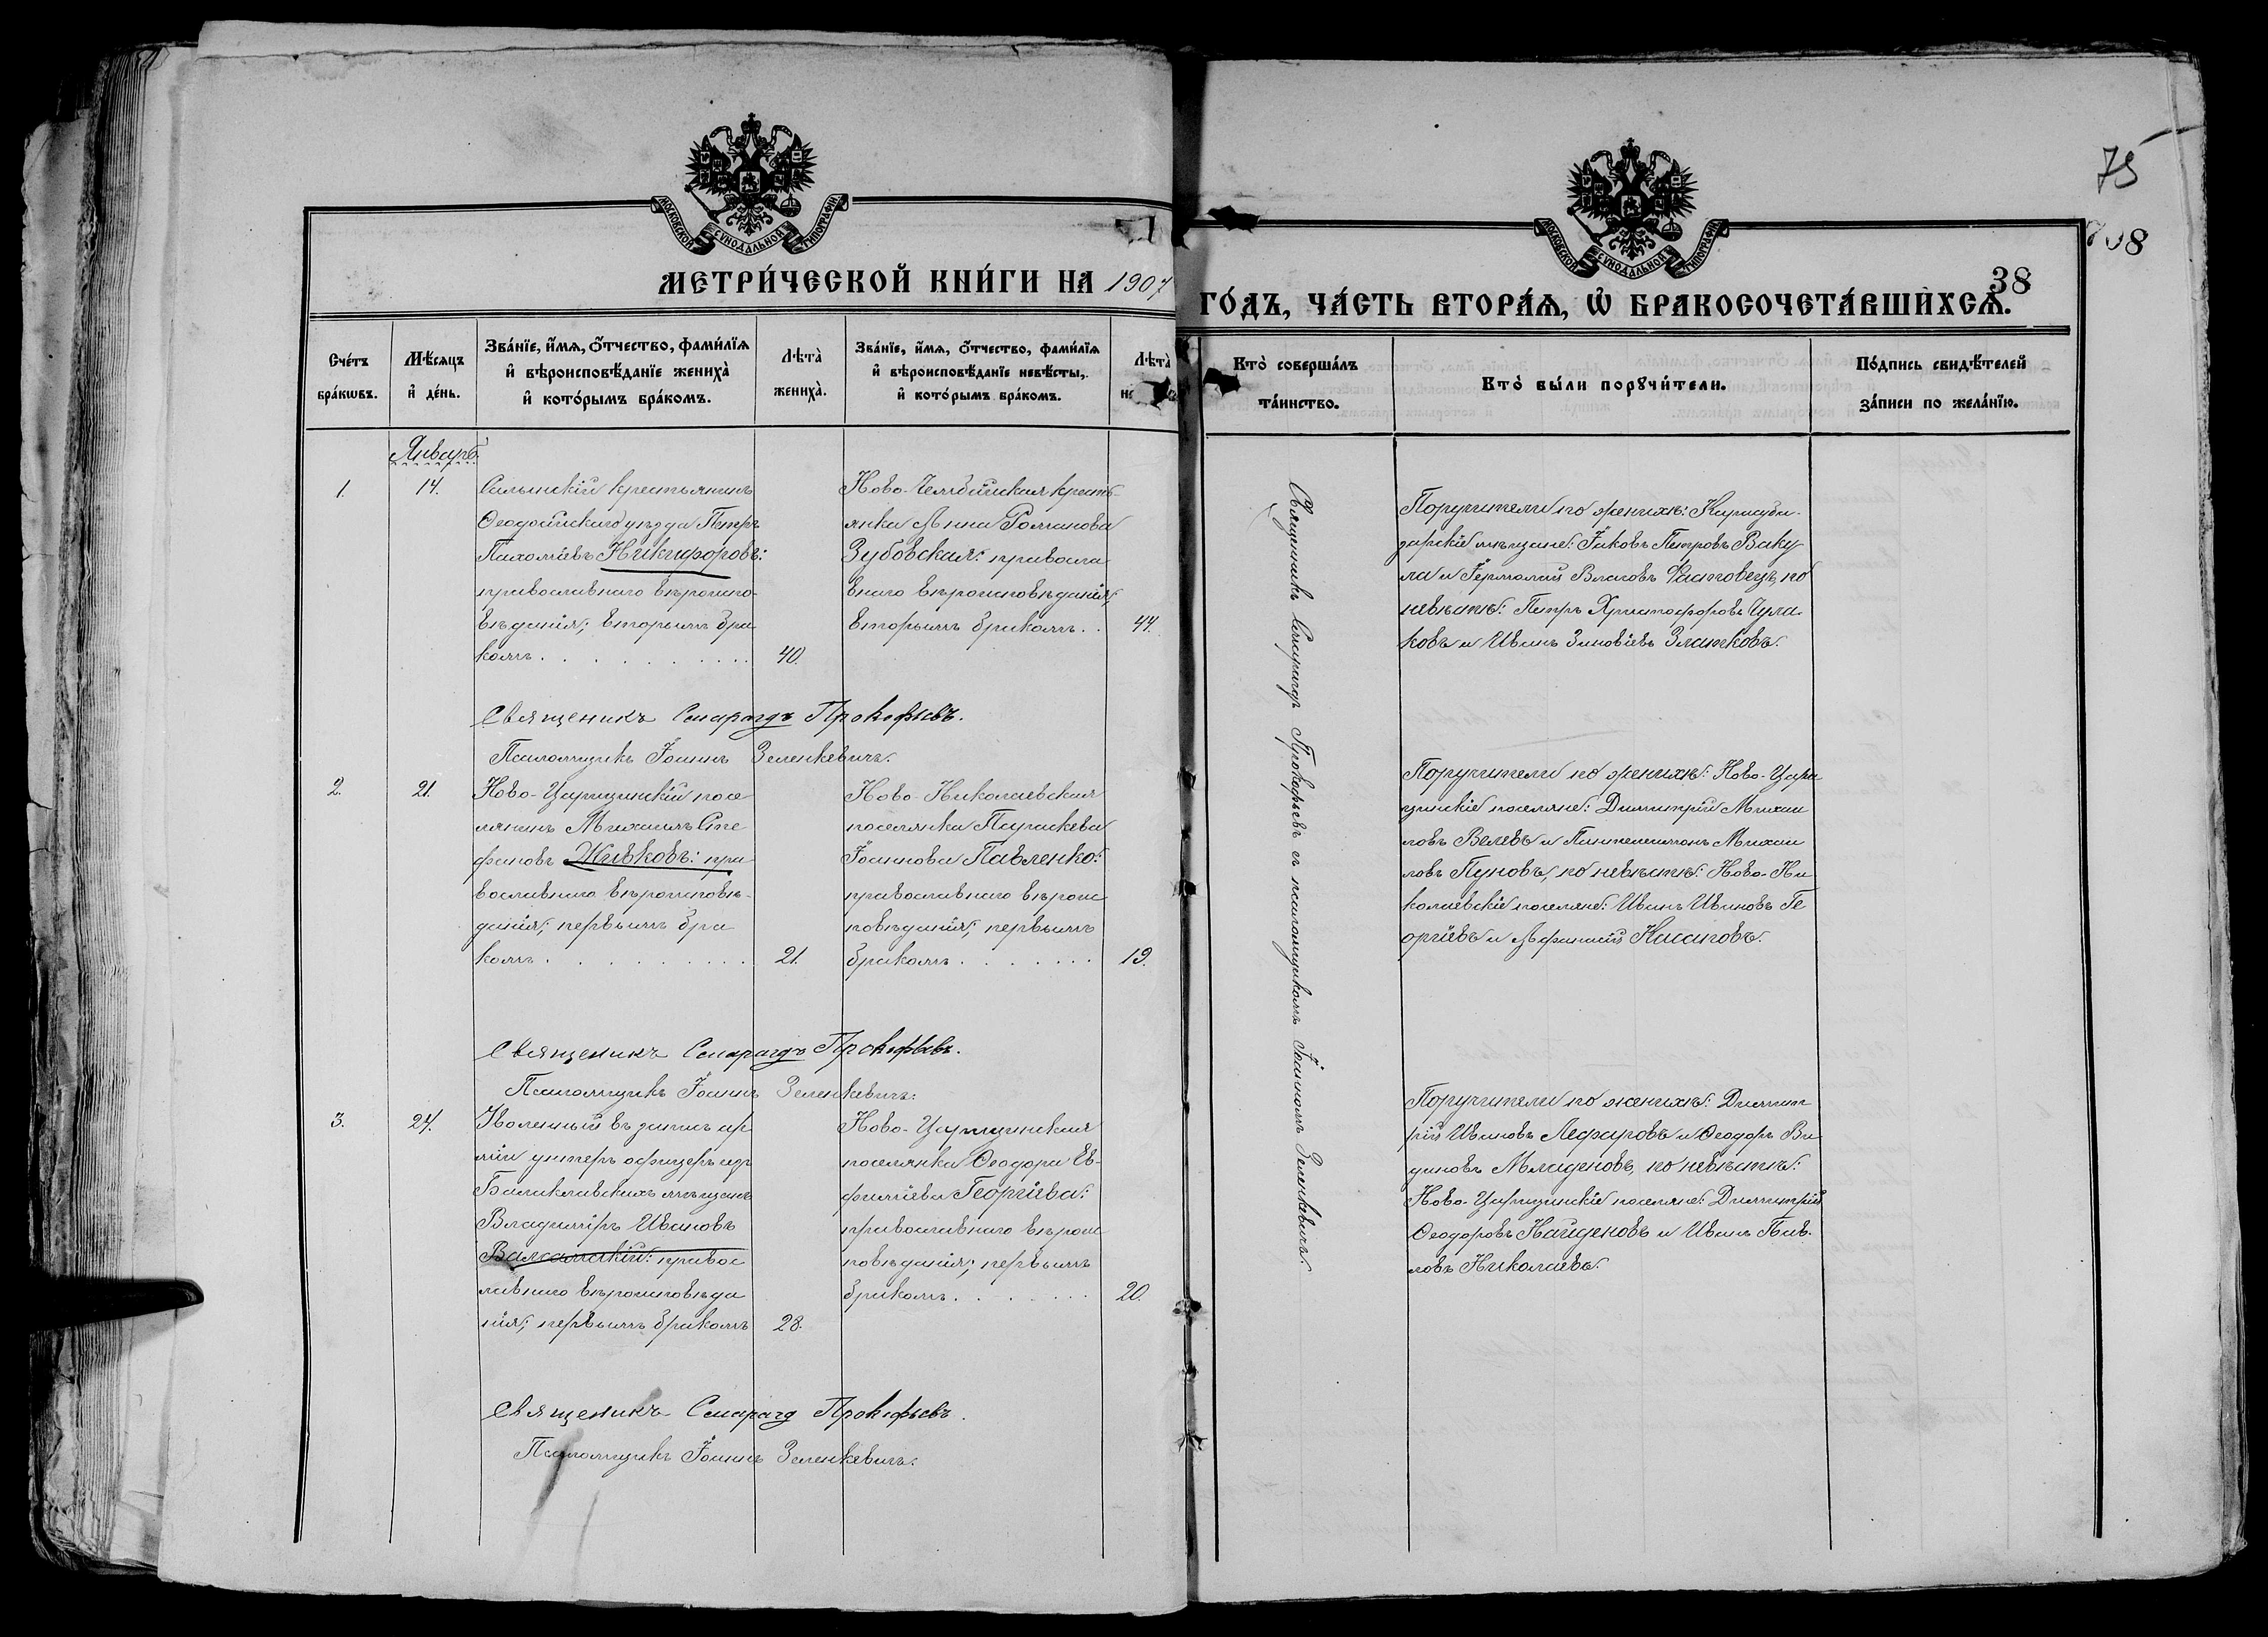 75
708
38
МОСКОВСКОЙ СѴНОДАЛЬНОЙ ТИПОГРАФІИ
МОСКОВСКОЙ СѴНОДАЛЬНОЙ ТИПОГРАФІИ
МЕТРИ́ЧЕСКОЙ КНИ́ГИ НА 1907
ГО́ДЪ, ЧА́СТЬ ВТОРА́Ѧ, Ѡ҆ БРАКОСОЧЕТА́ВШИХСѦ.
Сче́тъ
бра́кѡвъ.
Мѣ́сяцъ
и҆ де́нь.
Зва́нїе, и҆́мѧ, ѻ҆́тчество, фами́лїѧ
и҆ вѣроисповѣ́данїе жениха̀
и҆ кото́рымъ бра́комъ.
Лѣта̀
жениха̀.
Зва́нїе, и҆́мѧ, ѻ҆́тчество, фами́лїѧ
и҆ вѣроисповѣ́данїе невѣ́сты,
и҆ кото́рымъ бра́комъ.
Лѣта̀
Кто̀ соверша́лъ
та́инство.
Кто̀ бы́ли порꙋчи́тели.
По́дпись свидѣ́телей
за́писи по жела́нїю.
Январь.
1.
14.
Салынскій крестьянинъ
Ѳеодосійскаго уѣзда Петръ
Пахоміевъ Никифоровъ:
православнаго вѣроиспо-
вѣданія; вторымъ бра
комъ . . . . . . . . . .
40.
Ново-Челебійская кресть-
янка Анна Романова
Зубовская: правосла
внаго вѣроисповѣданія;
вторымъ бракомъ . .
44.
Священникъ Смарагдъ Прокофьевъ и псаломщикомъ Іоанномъ Зеленкевичъ.
Поручители по женихѣ: Карасуба-
зарскіе мѣщане: Іаковъ Петровъ Ваку
ла и Іермолай Власовъ Фастовецъ, по
невѣстѣ: Петръ Христофоровъ Чула-
ковъ и Иванъ Зиновіевъ Златковъ.
Священникъ Смарагдъ Прокофьевъ.
Псаломщикъ Іоаннъ Зеленкевичъ.
2.
21.
Ново-Царицинскій посе
лянинъ Михаилъ Сте
фановъ Живковъ: пра
вославнаго вѣроисповѣ-
данія; первымъ бра
комъ . . . . . . . . . .
21.
Ново-Николаевская
поселянка Параскева
Іоаннова Павленко:
православнаго вѣроис
повѣданія; первымъ
бракомъ . . . . . . .
19.
Поручители по женихѣ: Ново-Цари
цинскіе поселяне: Димитрій Михаи
ловъ Велевъ и Пантелеимонъ Михаи
ловъ Пуновъ, по невѣстѣ: Ново-Ни
колаевскіе поселяне: Иванъ Ивановъ Ге
оргіевъ и Афанасій
Священникъ Смарагдъ Прокофьевъ.
Псаломщикъ Іоаннъ Зеленкевичъ.
3.
24.
Уволенный въ запасъ ар
міи унтеръ офицеръ изъ
Балаклавскихъ мѣщанъ
Владиміръ Ивановъ
православнаго вѣроисповѣда
нія; первымъ бракомъ
28.
Ново-Царицинская
поселянка Ѳеодора Ев-
фиміева Георгіева:
православнаго вѣроис
повѣданія; первымъ
бракомъ . . . . . . .
20.
Поручители по женихѣ: Димит
рій Ивановъ Лефаровъ и Ѳеодоръ Ви
диновъ Младеновъ, по невѣстѣ:
Ново-Царицинскіе поселяне: Димитрій
Ѳеодоровъ Найденовъ и Иванъ Пав-
ловъ Николаевъ.
Священникъ Смарагд Прокофьевъ.
Псаломщикъ Іоаннъ Зеленкевичъ.